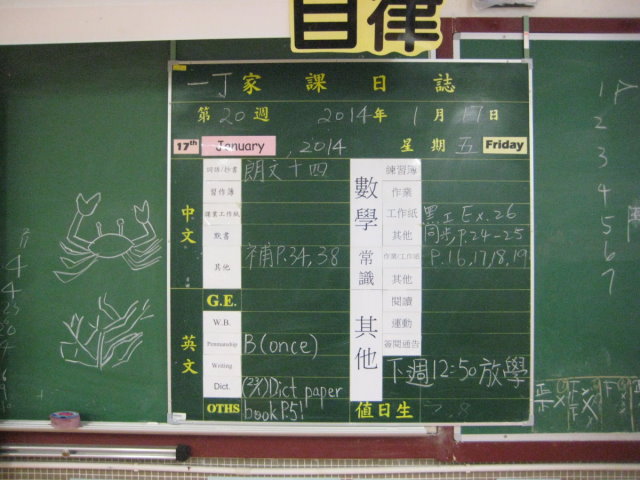 自律
一丁家課日誌
第20週 2014年1月17日
17th January, 2014 星期五 Friday
中文
詞語/抄書 朗文十四
習作簿
課業工作紙
默書
其他 補P.34,38
英文
G.E.
W.B.
Penmanship B(once)
Writing
Dict. Dict paper
OTHS book P.51
數學
練習簿
作業
工作紙
其他 同步P.24-25
常識
作業/工作紙 P.16,17,18,19
其他
其他
閱讀
運動
簽閱通告
下週12:50放學
值日生
1
2
3
4
5
6
7